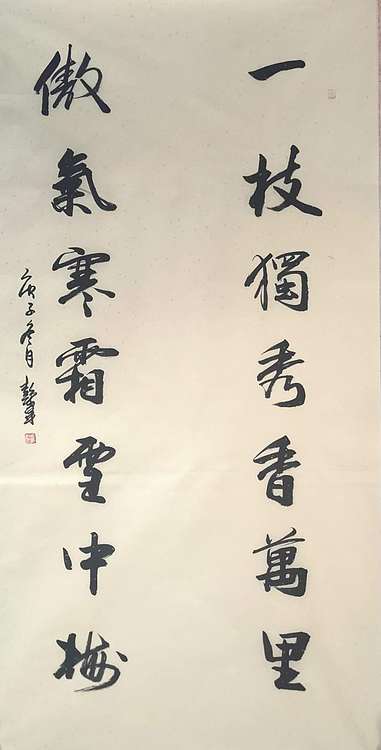 一枝獨秀香萬里
傲氣寒霜雪中梅
庚子冬月